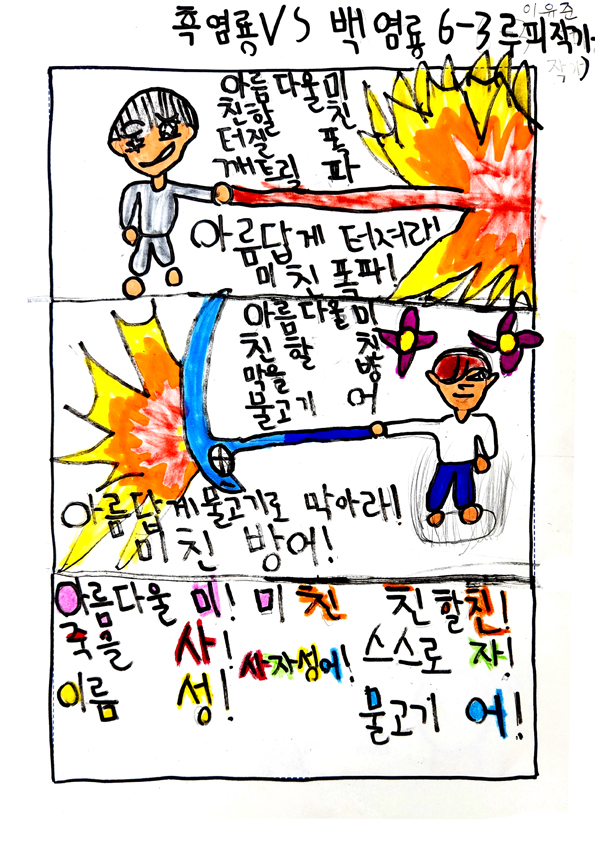 이유준
흑염룡 VS 백염룡 6-3 루피작가
작가
아름다울 미
친할 친
터질 폭
깨트릴 파
아름답게 터져라!
미친폭파!
아름다울 미
친할 친
막을 방
물고기 어
아름답게물고기로 막아라!
미친 방어!
아름다울 미! 미친 친할친!
죽을 사! 사자성어! 스스로 자!
이름 성! 물고기 어!